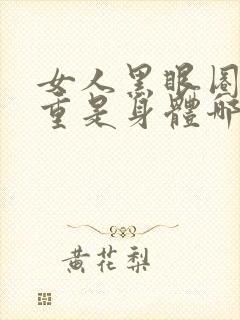 女人黑眼圈
重是身體哪
黄花梨